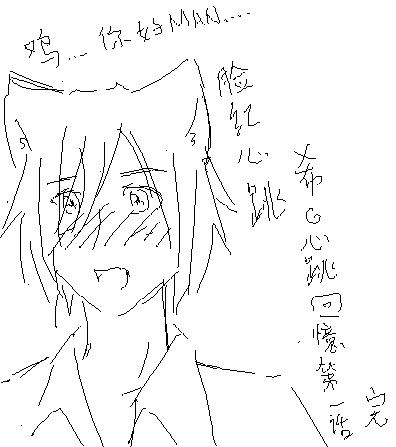 ... 你好MAN....
脸红心跳
希の心跳回憶第一话
完